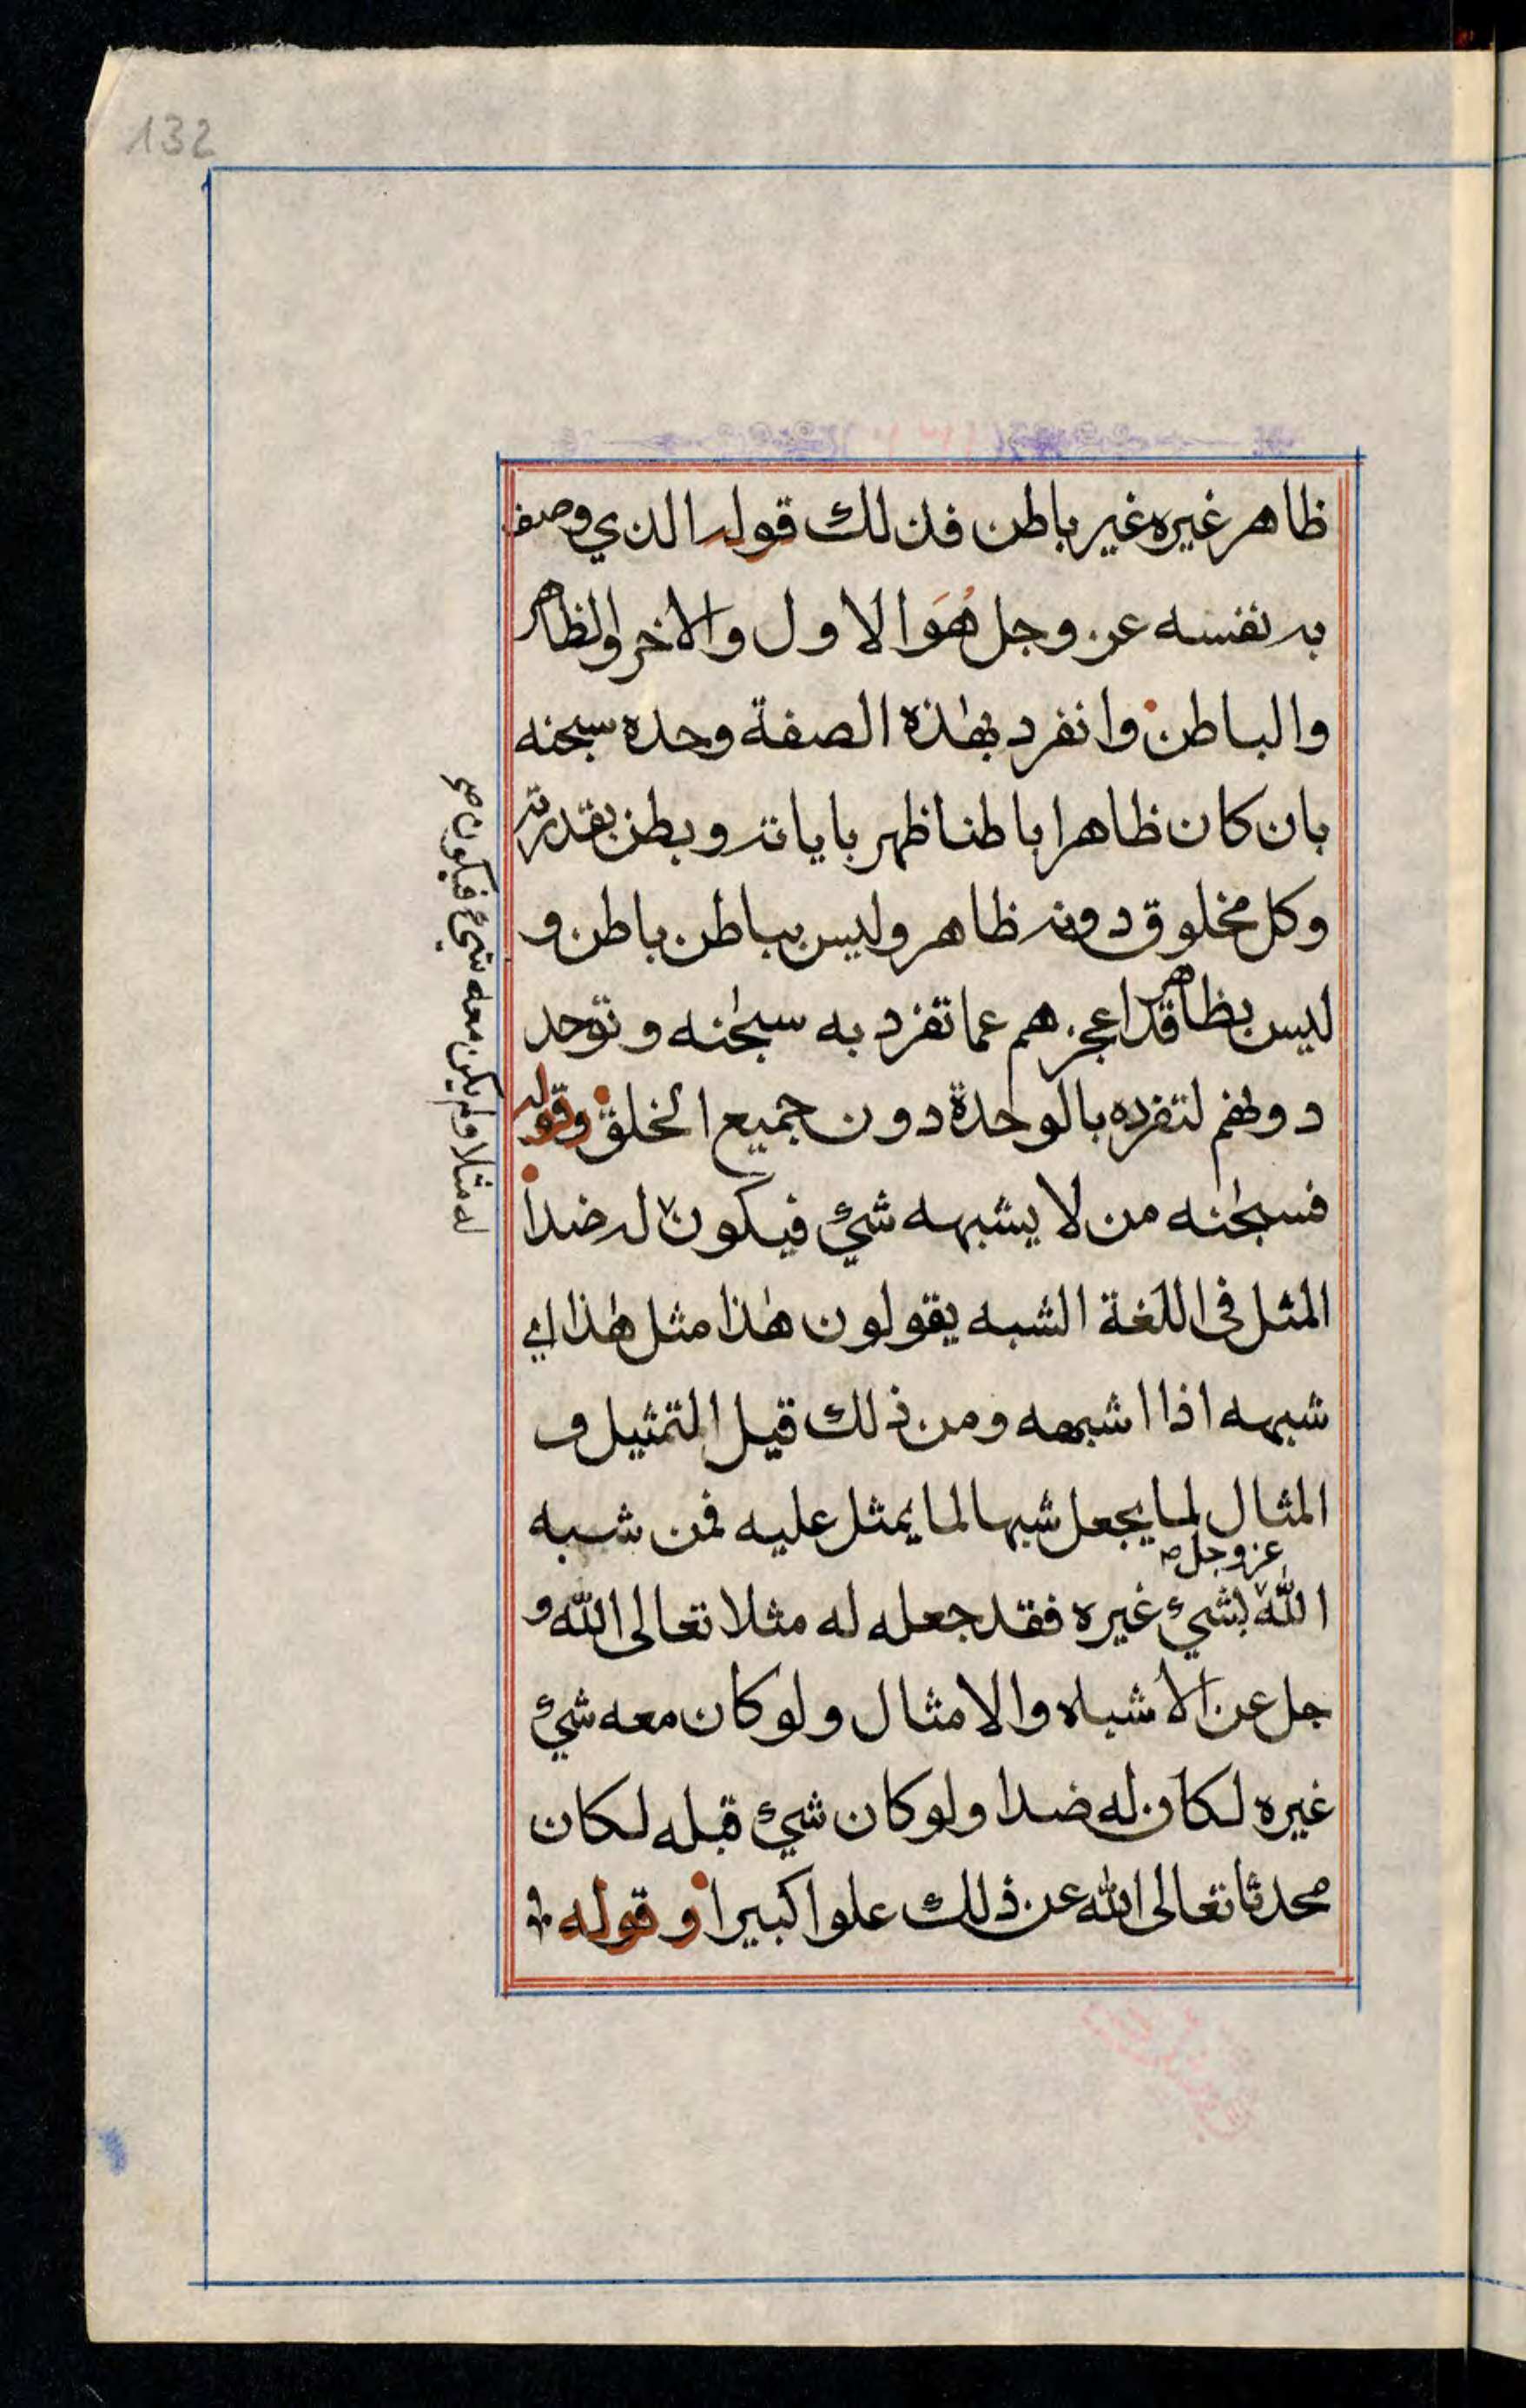 132
ظاهر غيره غير باطن فذلك قوله الذي وصف
به نفسه عز وجل هُوَ الاول والاخر والظاهر
والباطن وانفرد بهٰذه الصفة وحده سبحٰنه
بان كان ظاهرا باطنا ظهر باياته وبطن بقدرته
وكل مخلوق دونه ظاهر وليس بباطن باطن و
ليس بظاهر قد اعجزهم عما تفرد به سبحٰنه وتوحد
دونهم لتفرده بالوحدة دون جميع الخلق وقوله
فسبحٰنه من لا يشبهه شيء فيكون له ضدا
له مثلا ولم يكن معه شيء فيكون صح
المثل في اللغة الشبه يقولون هٰذا مثل هٰذا اي
شبهه اذا اشبهه ومن ذلك قيل التمثيل و
المثال لما يجعل شبها لما يمثل عليه فمن شبه
عز وجل صح
الله بشيء غيره فقد جعله له مثلا تعالى الله و
جل عن الاشباه والامثال ولو كان معه شيء
غيره لكان له ضدا ولو كان شيء قبله لكان
محدثا تعالى الله عن ذلك علوا كبيرا وقوله